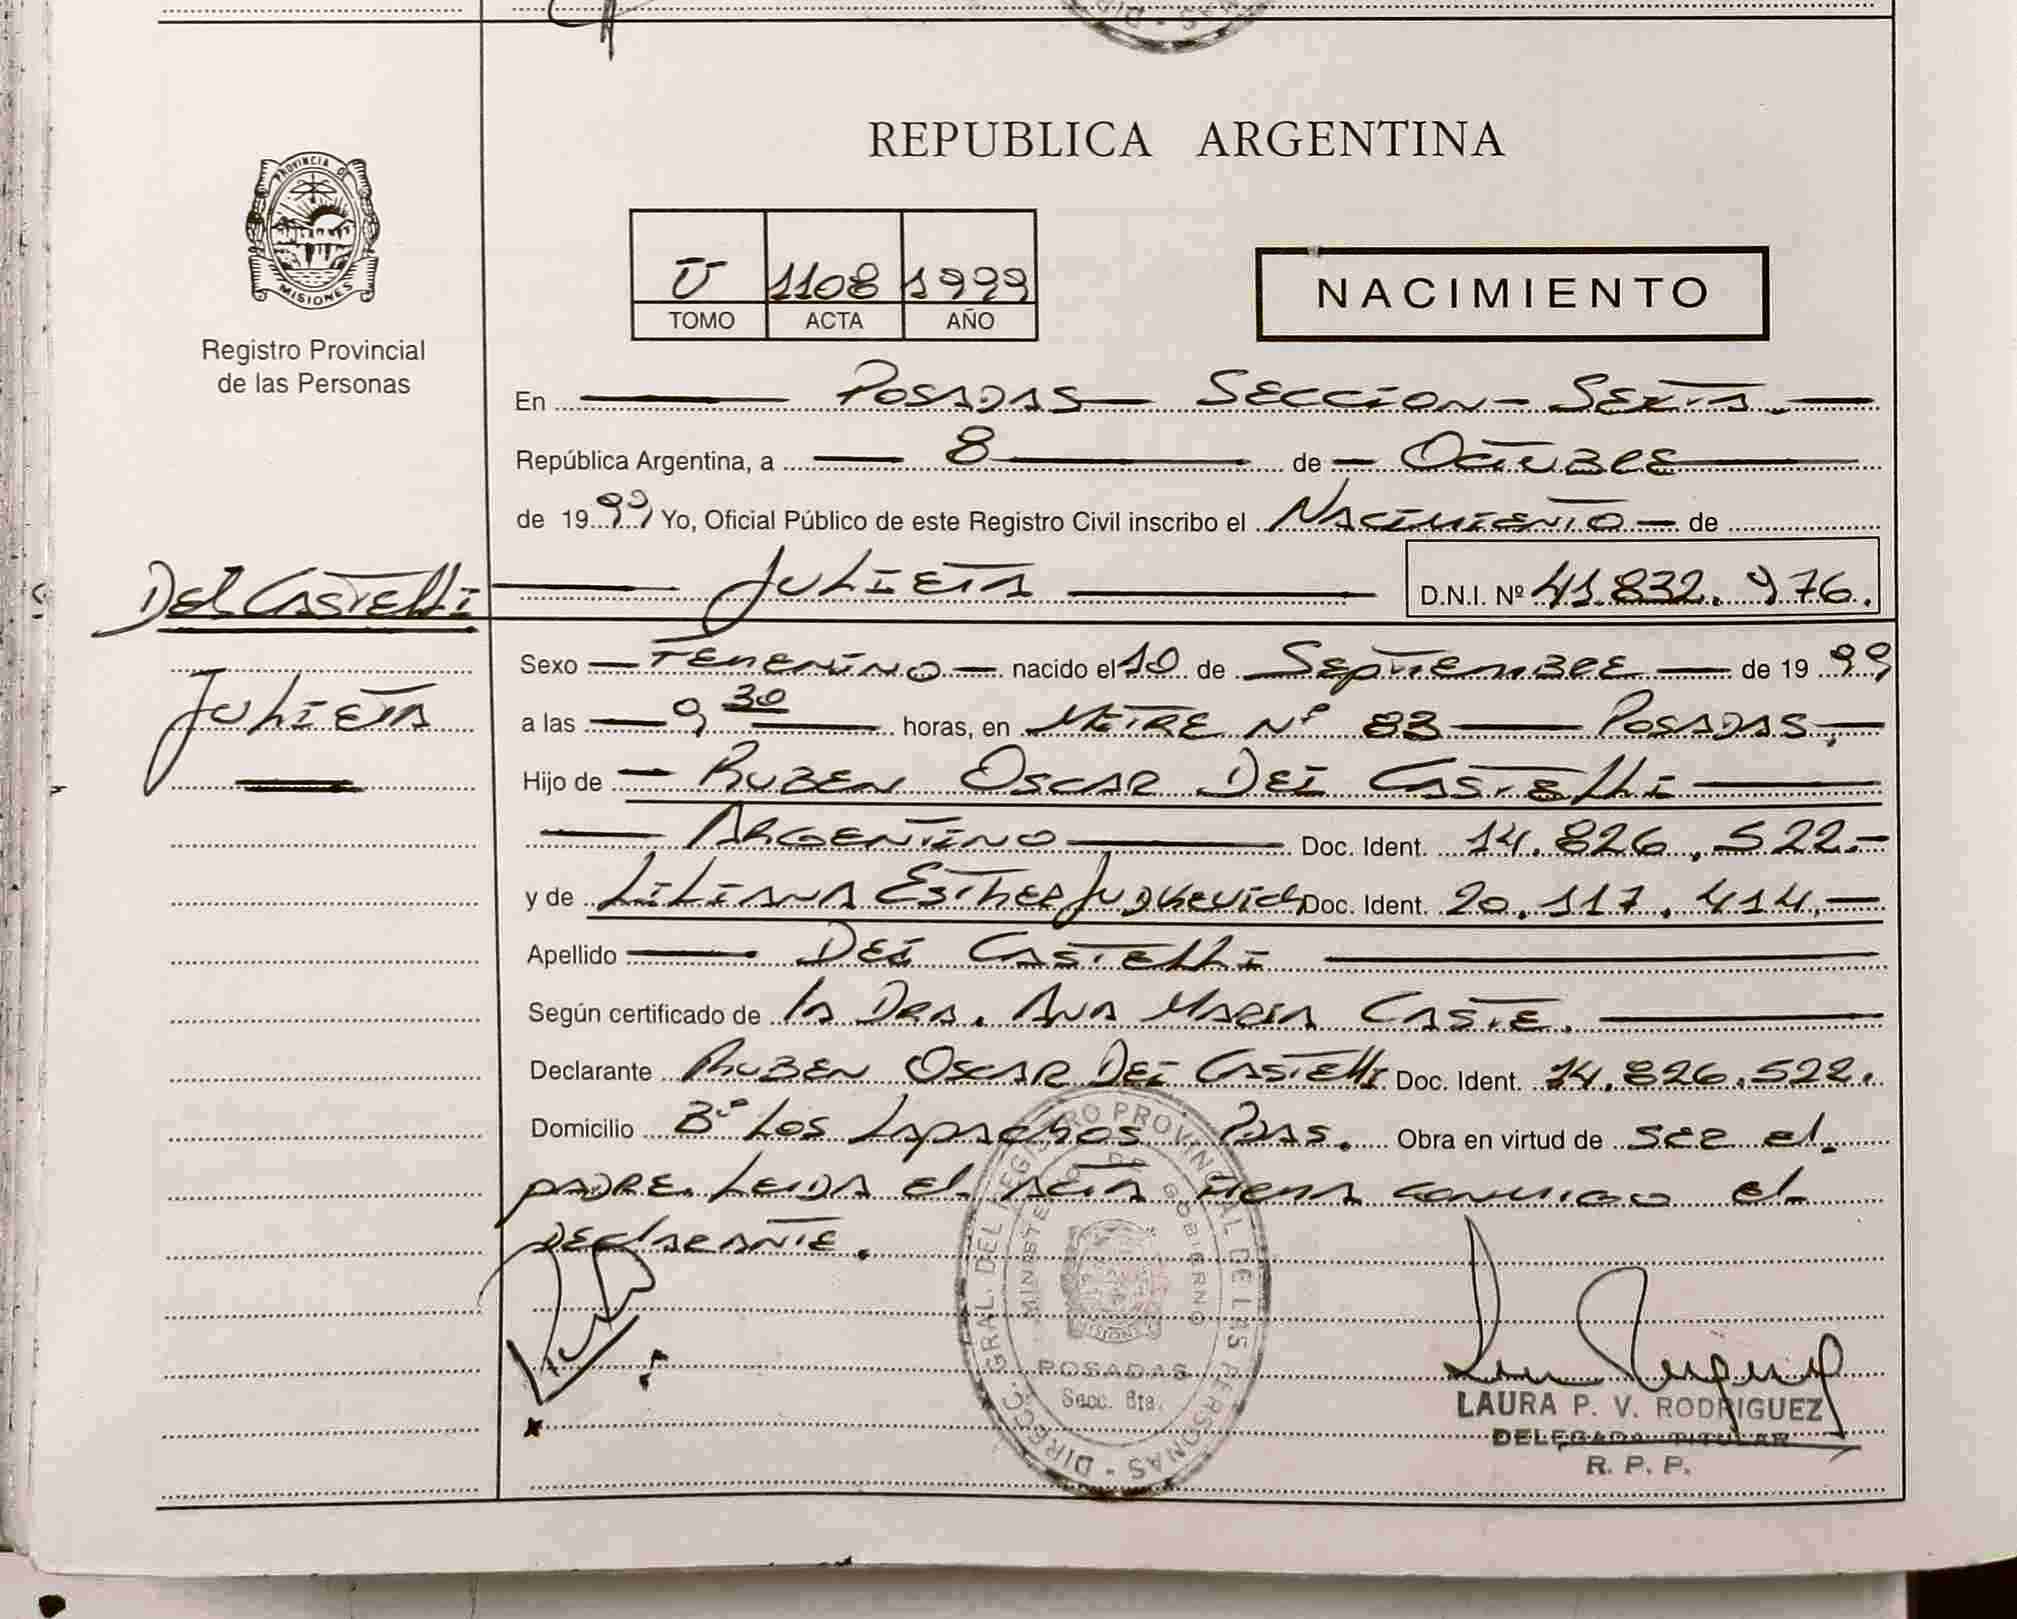 REPUBLICA ARGENTINA
PROVINCIA DE
MISIONES
Registro Provincial
de las Personas
Ū 1108 1999
TOMO ACTA AÑO
NACIMIENTO
En POSADAS - SECCION - SEXTA.
República Argentina, a 8 de OCTUBRE
de 1999 Yo, Oficial Público de este Registro Civil inscribo el NACIMIENTO de
Del Castelli
JULIETA D.N.I. Nº 41.832.976.
JULIETA
Sexo FEMENINO nacido el 10 de SEPTIEMBRE de 1999
a las 9 30 horas, en MITRE Nº 83 POSADAS.
Hijo de RUBEN OSCAR DEI CASTELLI
ARGENTINO Doc. Ident. 14.826.522.-
y de LILIANA ESTHER JUDKEVICH Doc. Ident. 20.117.414.-
Apellido DEI CASTELLI
Según certificado de la DRA. ANA MARIA CASTE.
Declarante RUBEN OSCAR DEI CASTELLI Doc. Ident. 14.826.522.
Domicilio Bº LOS LAPACHOS PDAS. Obra en virtud de SER el
PADRE. LEIDA el ACTA FIRMA CONMIGO el
DECLARANTE.
DIRECC. GRAL. DEL REGISTRO PROVINCIAL DE LAS PERSONAS
MINISTERIO DE GOBIERNO
MISIONES
POSADAS
Secc. 6ta.
LAURA P. V. RODRIGUEZ
DELEGADA TITULAR
R. P. P.